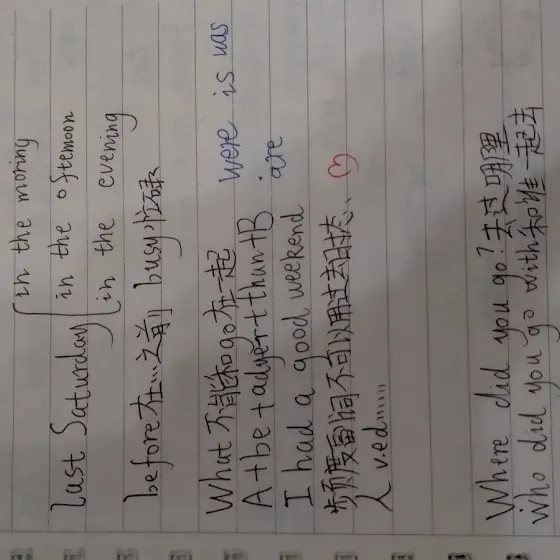 in the moring
last Saturday in the oftemoon
in the evening
before在...之前 busy忙碌
What不能和go在一起 were is was
A+be+adyer+than+B are
I had a good weekend
频度副词不可以用过去时态、
人 v.ed......
Where did you go?去过哪里
Who did you go with和谁一起去